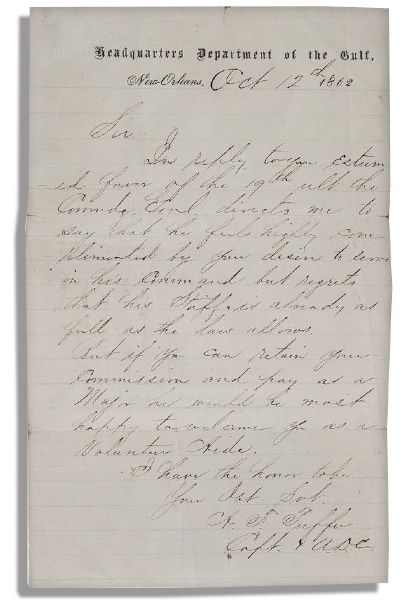 Headquarters Department of the Gulf,
New-Orleans, Oct 12th 1862
Sir
In reply to your esteem-
ed favor of the 19th ult the
Commdg Genl, directs me to
say that he feels highly com-
plimented by your desire to serve
in his command but regrets
that his Staff, is already as
full as the law allows.
But if you can retain your
Commission and pay as a
Major he would be most
happy to welcome you as a
Volunteer Aide.
I have the honor to be
Your Obt. Svt.
A. F. Puffer
Capt. & A.D.C.